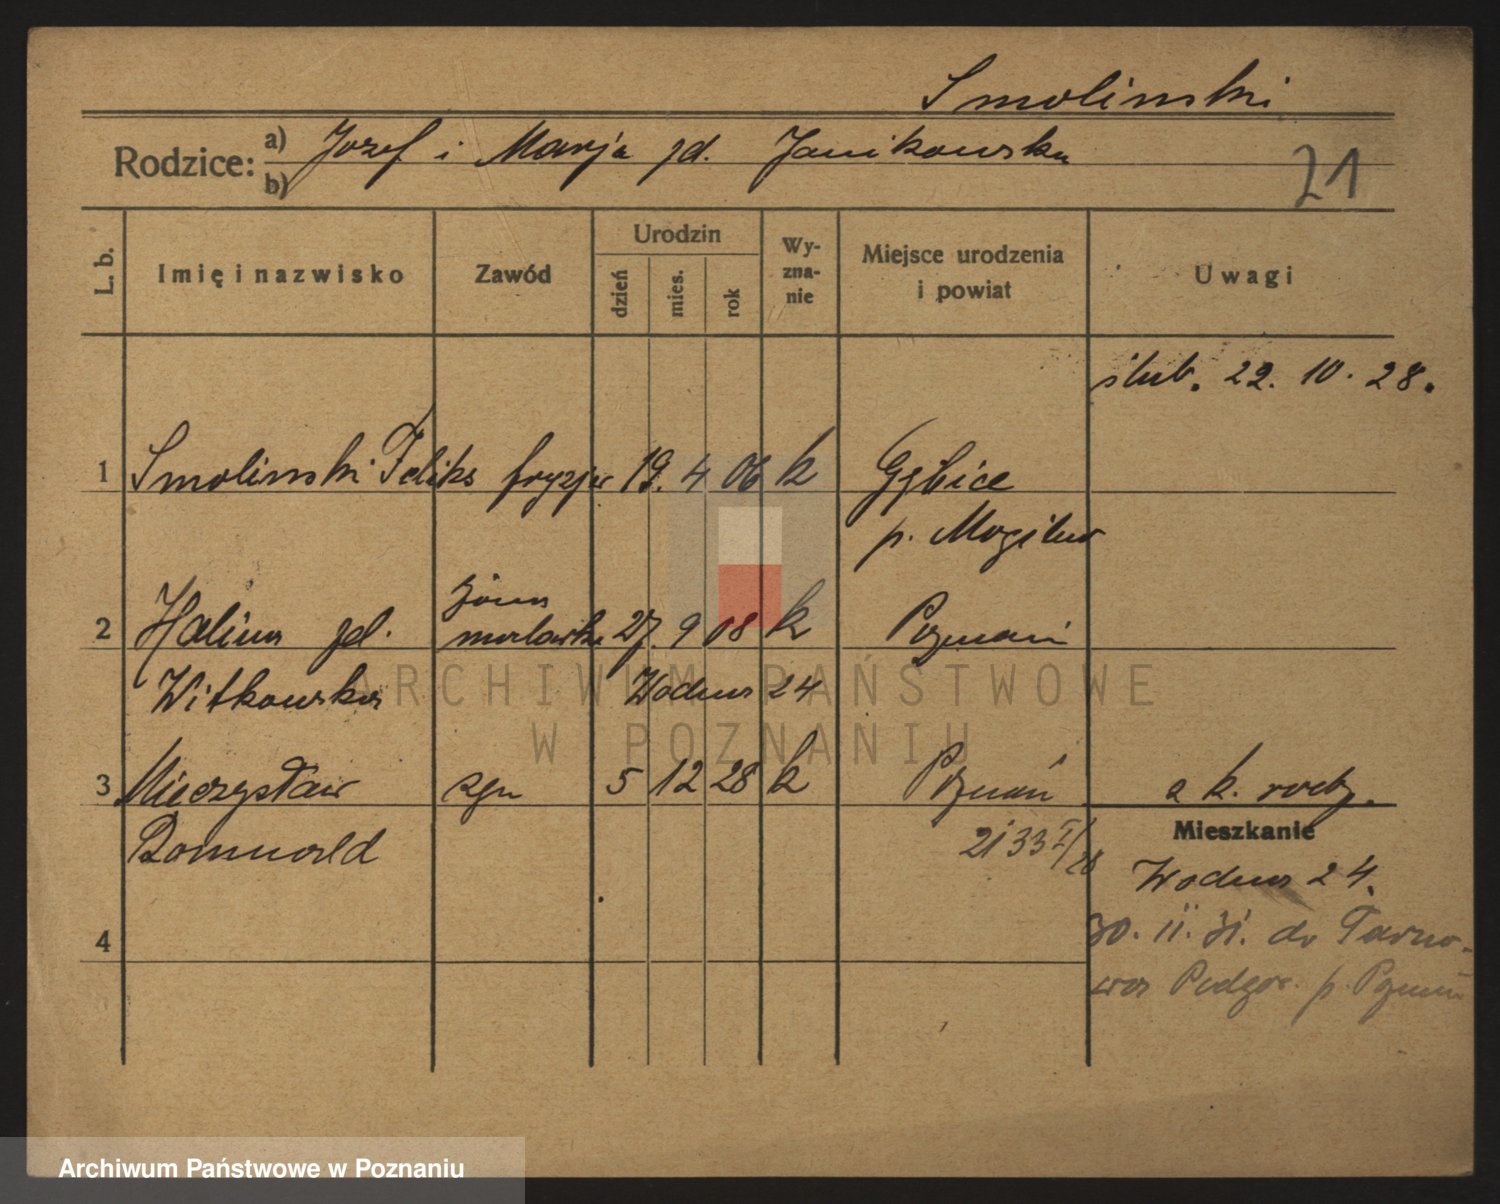 Smolinski
Rodzice: a) Jozef i Marja zd. Janikowska
b)
21
L. b. Imię i nazwisko Zawód Urodzin dzień mies. rok Wyznanie Miejsce urodzenia i powiat Uwagi
ślub. 22. 10. 28.
1 Smolinski Feliks fryzjer 19. 4 06 k Gębice
p. Mogilno
żona
2 Halina zd. 27. 9 08 k Poznań
Witkowska Wodna 24
3 Mieczysław syn 5 12 28 k Poznań a k. rodz.
Romuald 2133 I/28
Mieszkanie
Wodna 24.
4 30. 11. 31. do Tarno-
wa Podgór. p. Poznań
ARCHIWUM PAŃSTWOWE
W POZNANIU
Archiwum Państwowe w Poznaniu